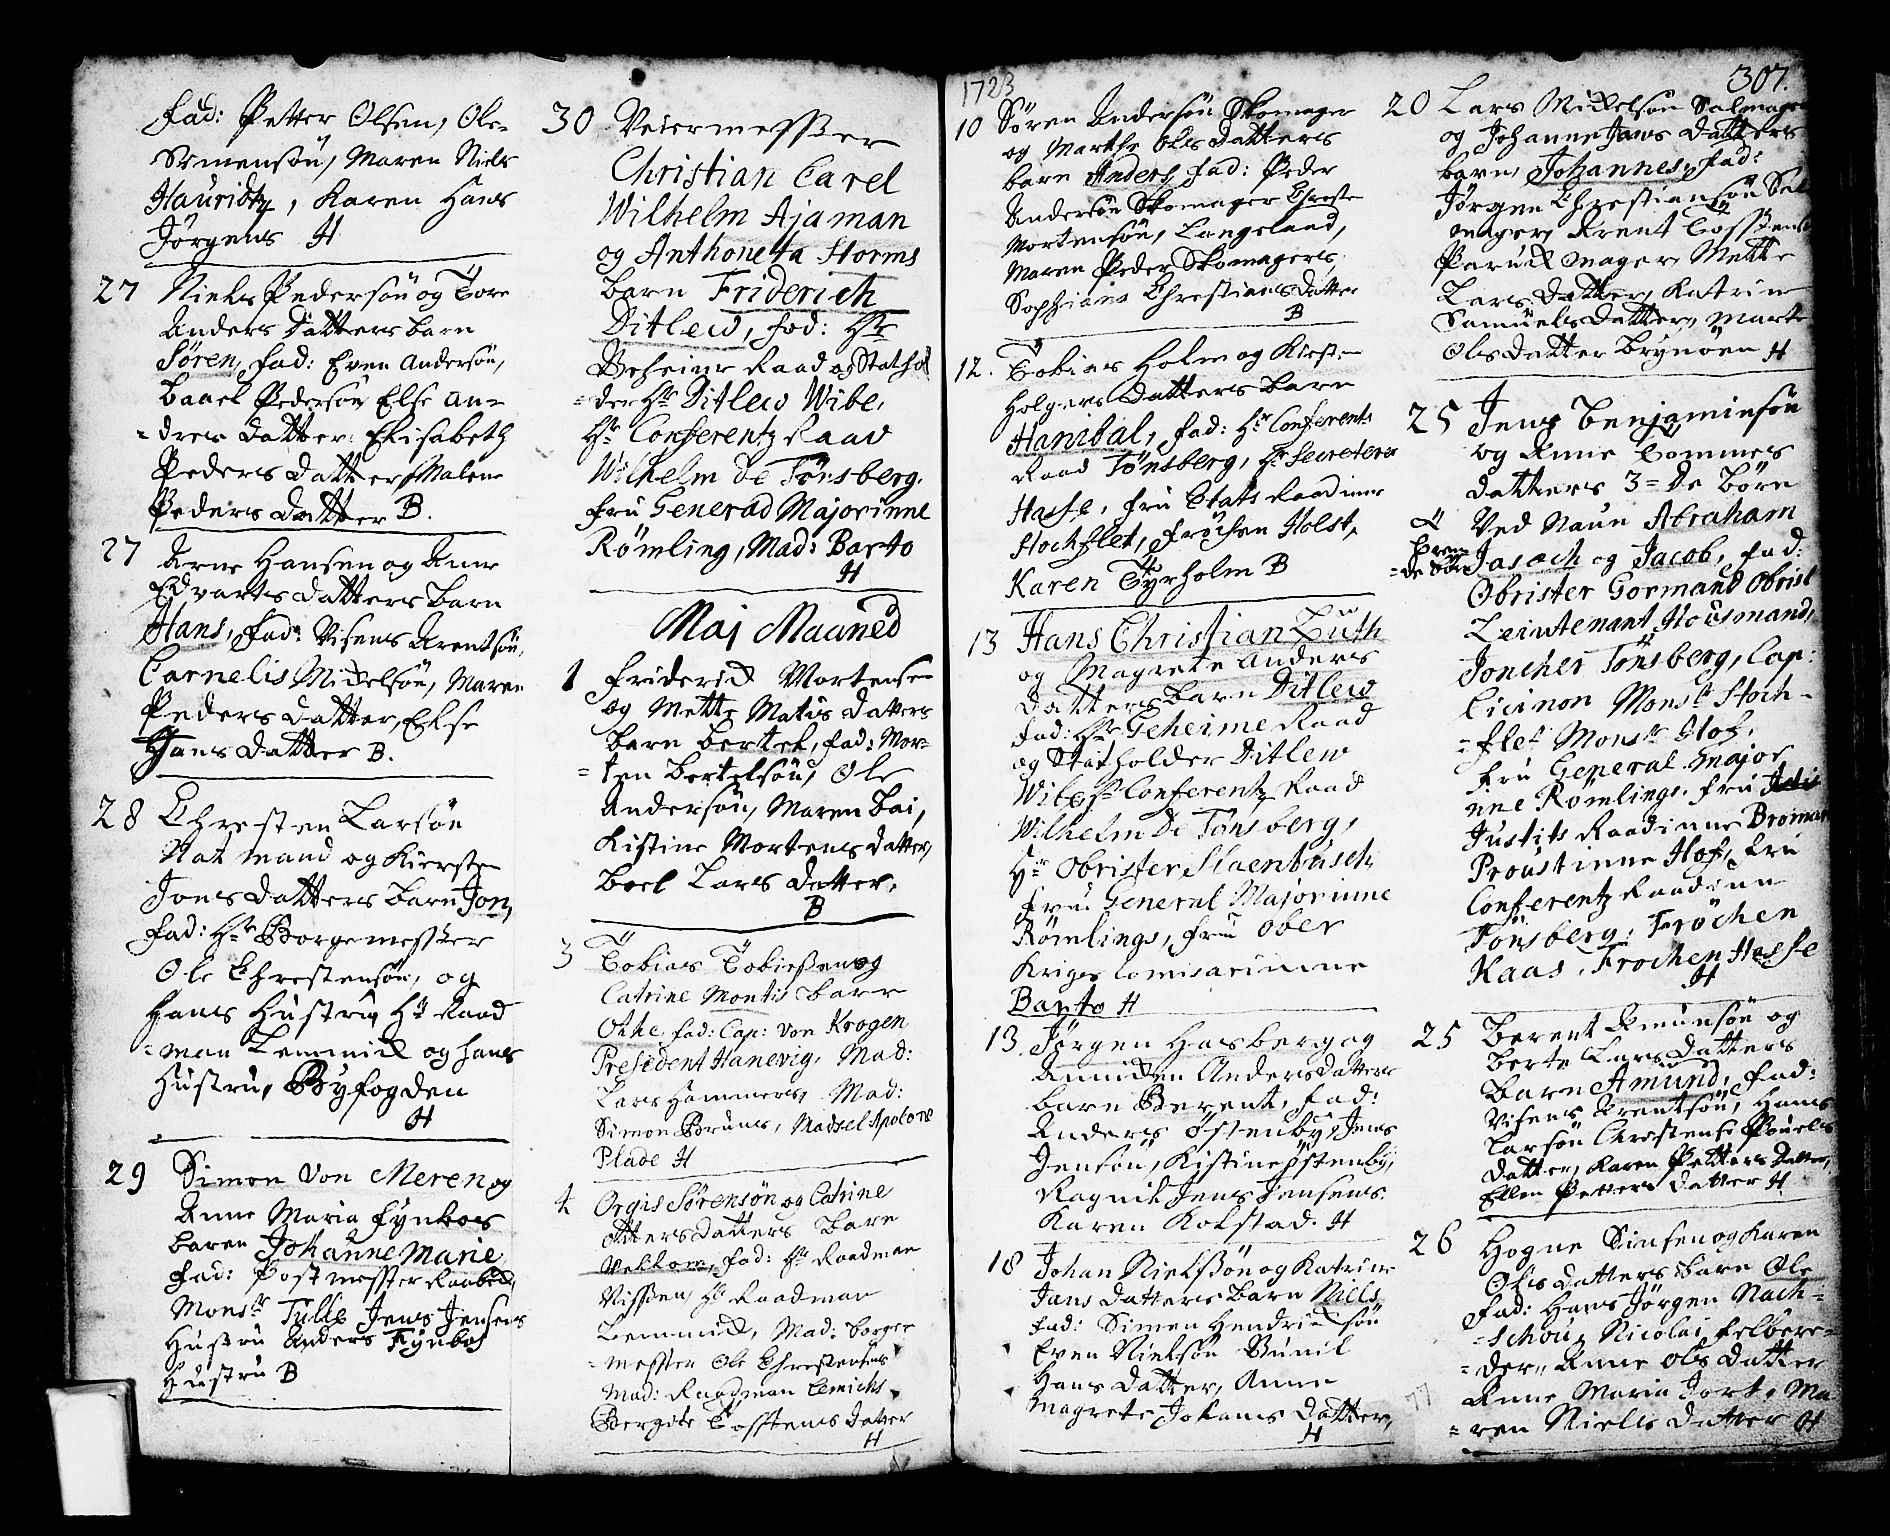 Fad: Petter Olsen, Ole
Semensön, Maren Niels
Hauridtz, Karen Hans
Jörgens H
27 Niels Pedersön og Tore
Anders Datters barn
Sören, Fad: Even Andersön,
Baael Pedersön Else An=
=dres Datter: Elisabeth
Peders Datter Malene
Peders Datter B.
27 Arne Hansen og Anne
Edvarts Datters barn
Hans, Fad: Nisens Arentsön,
Carnelis Mickelsön, Maren
Peders Datter, Else
Hans Datter B.
28 Chresten Larsön
Nat mand og Kierste
Jons Datters barn Jon,
Fad: Hr Borgemester
Ole Chrestensön, og
Hans Hustru, Hr Raad
=man Lemmick og hans
Hustru, Byfogden
H
29 Simon Von Meren og
Anne Maria Fynbos
baren Johanne Marie
Fad: Postmester
Monsr Tulle Jens Jensens
Husru Anders Fynbos
Hustru B
30 Veiermesser
Christian Carel
Wilhelm Ajaman
og Anthoneta Storms
barn Friderich
Ditlew, Fad: Hr
Geheime Raad og Stathol
=der Hr Ditlew Wibe,
Hr Conferentz Raad
Wilhelm De Tönsberg.
Fru General Majorinne
Römling, Mad: Barto
H
Maj Maaned
1 Friderick Mortensen
og Mette Matis Datters
barn bertel, Fad: Mor=
=ten Bertelsön, Ole
Andersön, Maren Bai,
Kistine Mortens Datter,
Boel Lars Datter,
B
3 Tobias Tobiesen og
Catrine Montis barn
Othe, Fad: Cap: Von Krogen
President Hanevig, Mad:
Lars Hammers, Mad:
Simon Bruns, Madsel Apolone
Plade H
4 Orgis Sörensön og Catrine
Otters Datters barn
Fad: Hr Raadman
Nissen, Hr Raadman
Lemmick, Mad: borger
=mester Ole Chrestensens
Mad: Raadman Lemichs
Bergite Tostens Datter
H
1723
10 Sören Andersön Skomager
og Marthe Ols Datters
barn Anders, Fad: Peder
Andersön Skomager Chreste
Mortensön, Langeland,
Maren Peder Skomagers,
Sophiana Chrestians Datter
B
12. Tobias Holm og Kirste
Holgers Datters barn
Hanibal, Fad: Hr Conferents
Raad Tönsberg, Hr Secreterer
Hasse, Fru Etats Raadinne
Stochflet, Fröchen Holst,
Karen Tyrholm B
13 Hans Christian Luth
og Magrete Anders
Datters barn Ditlew
Fad: Hr Geheime Raad
og Statholder Ditlew
Wibe, Hr Conferentz Raad
Wilhelm De Tönsberg,
Hr Obrister Staenbusch
Fru General Majorinne
Römlings, Fru Ober
Kriges Comisarinne
Barto H
13. Jörgen Hasberg og
Annicken Anders Datters
barn Berent, Fad:
Anders Östenby, Jens
Jensön, Kistine Östenby,
Ragnil Jens Jensens
Karen Kolstad. H
18 Johan Nielssön og Katrine
Jans Datters barn Niels
Fad: Simen Hendricksön
Even Nielsön Gunil
Hans Datter, Anne
Magrete Johans Datter,
H
307.
20 Lars Mickelsön Salmager
og Johanne Jans Datters
barn, Johannes, Fad:
Jörgen Chrestiansön Sal
mager, Arent Tossens
Peruckmager, Mette
Lars Datter, Katrin
Samuels Datter, Marte
Ols Datter Brynöen H
25 Jens Benjaminsön
og Anne Tommes
Datters 3=de Börn
Ved Naun Abraham
Jasach og Jacob, Fad:
Obrister Gormand Obrist
Leiutenant Housmand,
Joncher Tönsberg, Cap:
Cicinon Monsr Stoch=
=flet Monsr Hof,
Fru General Major
inne Römlings, Fru
Justits Raadinne Broman
Proustinne Hof, Fru
Conferentz Raadinne
Tönsberg, Fröchen
Kaas, Frochen Hasse
H
25 Berent Amunsön og
Berte Lars Datters
Barn Amund, Fad:
Nisens Arentsön, Hans
Larsön Chrestense Pouels
Datter, Karen Petters Datter,
Ellen Petters Datter H
26 Hogne Simsen og Karen
Ols Datters barn Ole
Fad: Hans Jörgen Nach=
=schou, Nicolai Felbere=
=der, Anne Ols Datter
Anne Maria Jort, Ma
=ren Niels Datter H